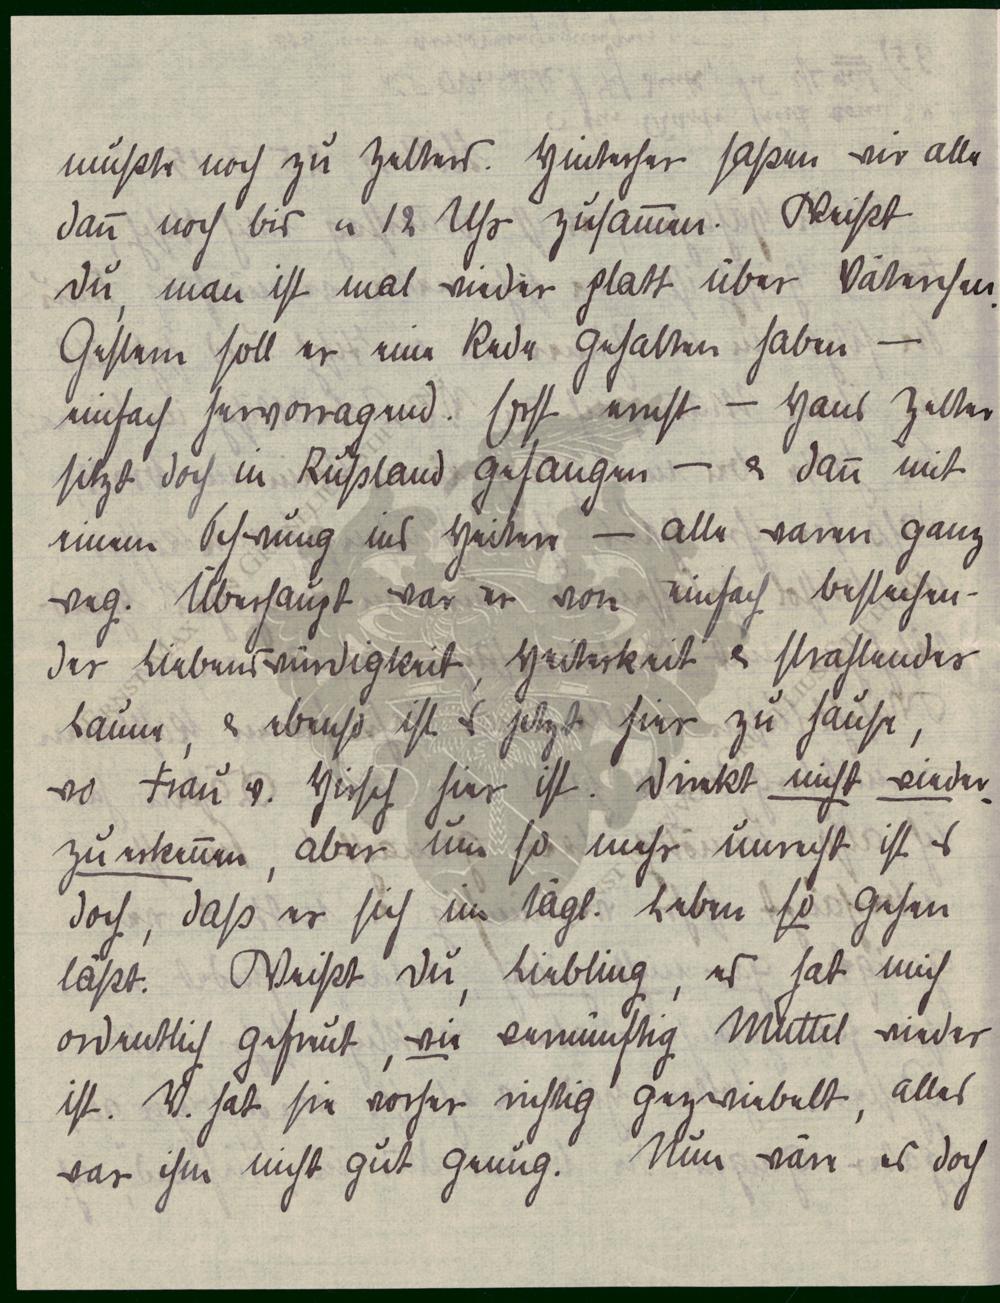 mußte noch zu Zelters. Hinterher saßen wir alle
dan̄ noch bis n 12 Uhr zusam̄en. Weißt
Du, man ist mal wieder platt über Väterchen.
Gestern soll er eine Rede gehalten haben —
einfach hervorragend. Erst ernst — Hans Zelter
sitzt doch in Rußland gefangen — & dan̄ mit
einem Schwung ins Heitere — alle waren ganz
weg. Überhaupt war er von einfach bestechen-
der Liebenswürdigkeit, Heiterkeit & strahlender
Laune, & ebenso ist es jetzt hier zu Hause,
wo Frau v. Hirsch hier ist. Direkt nicht wieder-
zuerken̄en, aber um so mehr unrecht ist es
doch, daß er sich im tägl. Leben so gehen
läßt. Weißt Du, Liebling, es hat mich
ordentlich gefreut, wie vernünftig Muttel wieder
ist. V. hat sie vorher richtig gezwiebelt, alles
war ihm nicht gut genug. Nun wäre es doch